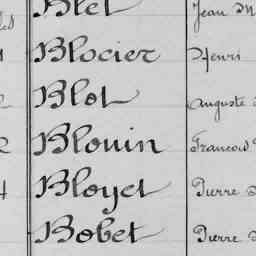 Blet Jean M
Blocier Henri
Blot Auguste
Blouin Francois
Bloyet Pierre
Bobet Pierre